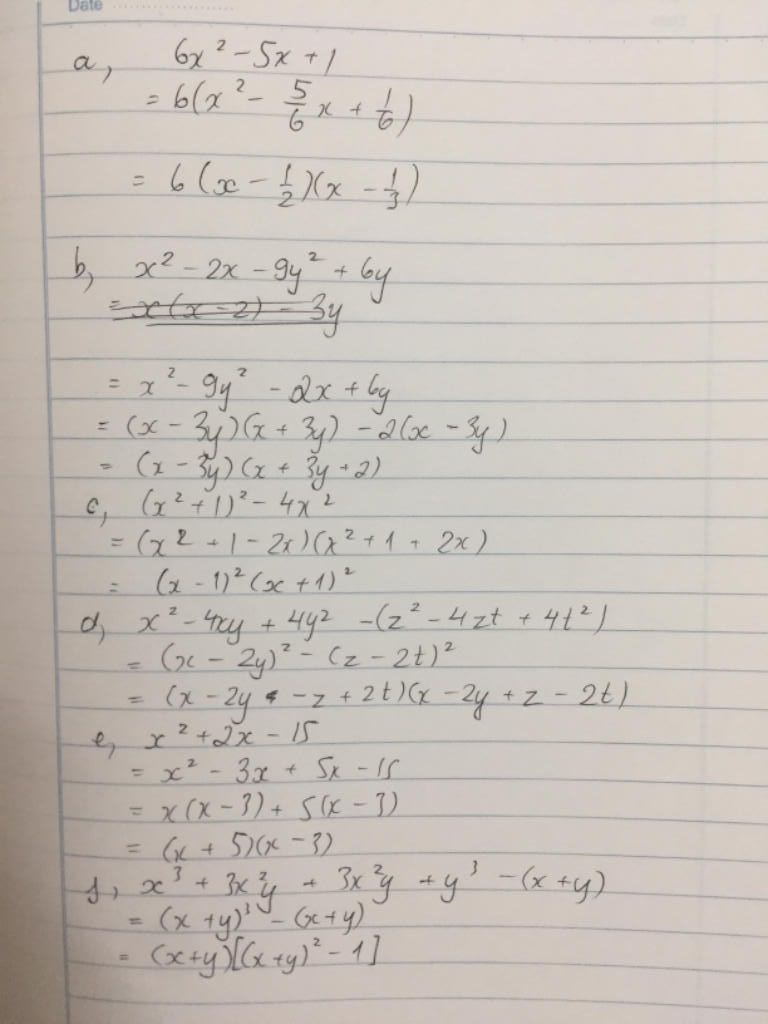 Date
a, 6x² - 5x + 1
= 6(x² - 5/6 x + 1/6)
= 6(x - 1/2)(x - 1/3)
b, x² - 2x - 9y² + 6y
= x(x - 2) - 3y
= x² - 9y² - 2x + 6y
= (x - 3y)(x + 3y) - 2(x - 3y)
= (x - 3y)(x + 3y + 2)
c, (x² + 1)² - 4x²
= (x² + 1 - 2x)(x² + 1 + 2x)
= (x - 1)²(x + 1)²
d, x² - 4xy + 4y² - (z² - 4zt + 4t²)
= (x - 2y)² - (z - 2t)²
= (x - 2y - z + 2t)(x - 2y + z - 2t)
e, x² + 2x - 15
= x² - 3x + 5x - 15
= x(x - 3) + 5(x - 3)
= (x + 5)(x - 3)
f, x³ + 3x²y + 3x²y + y³ - (x + y)
= (x + y)³ - (x + y)
= (x + y)[(x + y)² - 1]